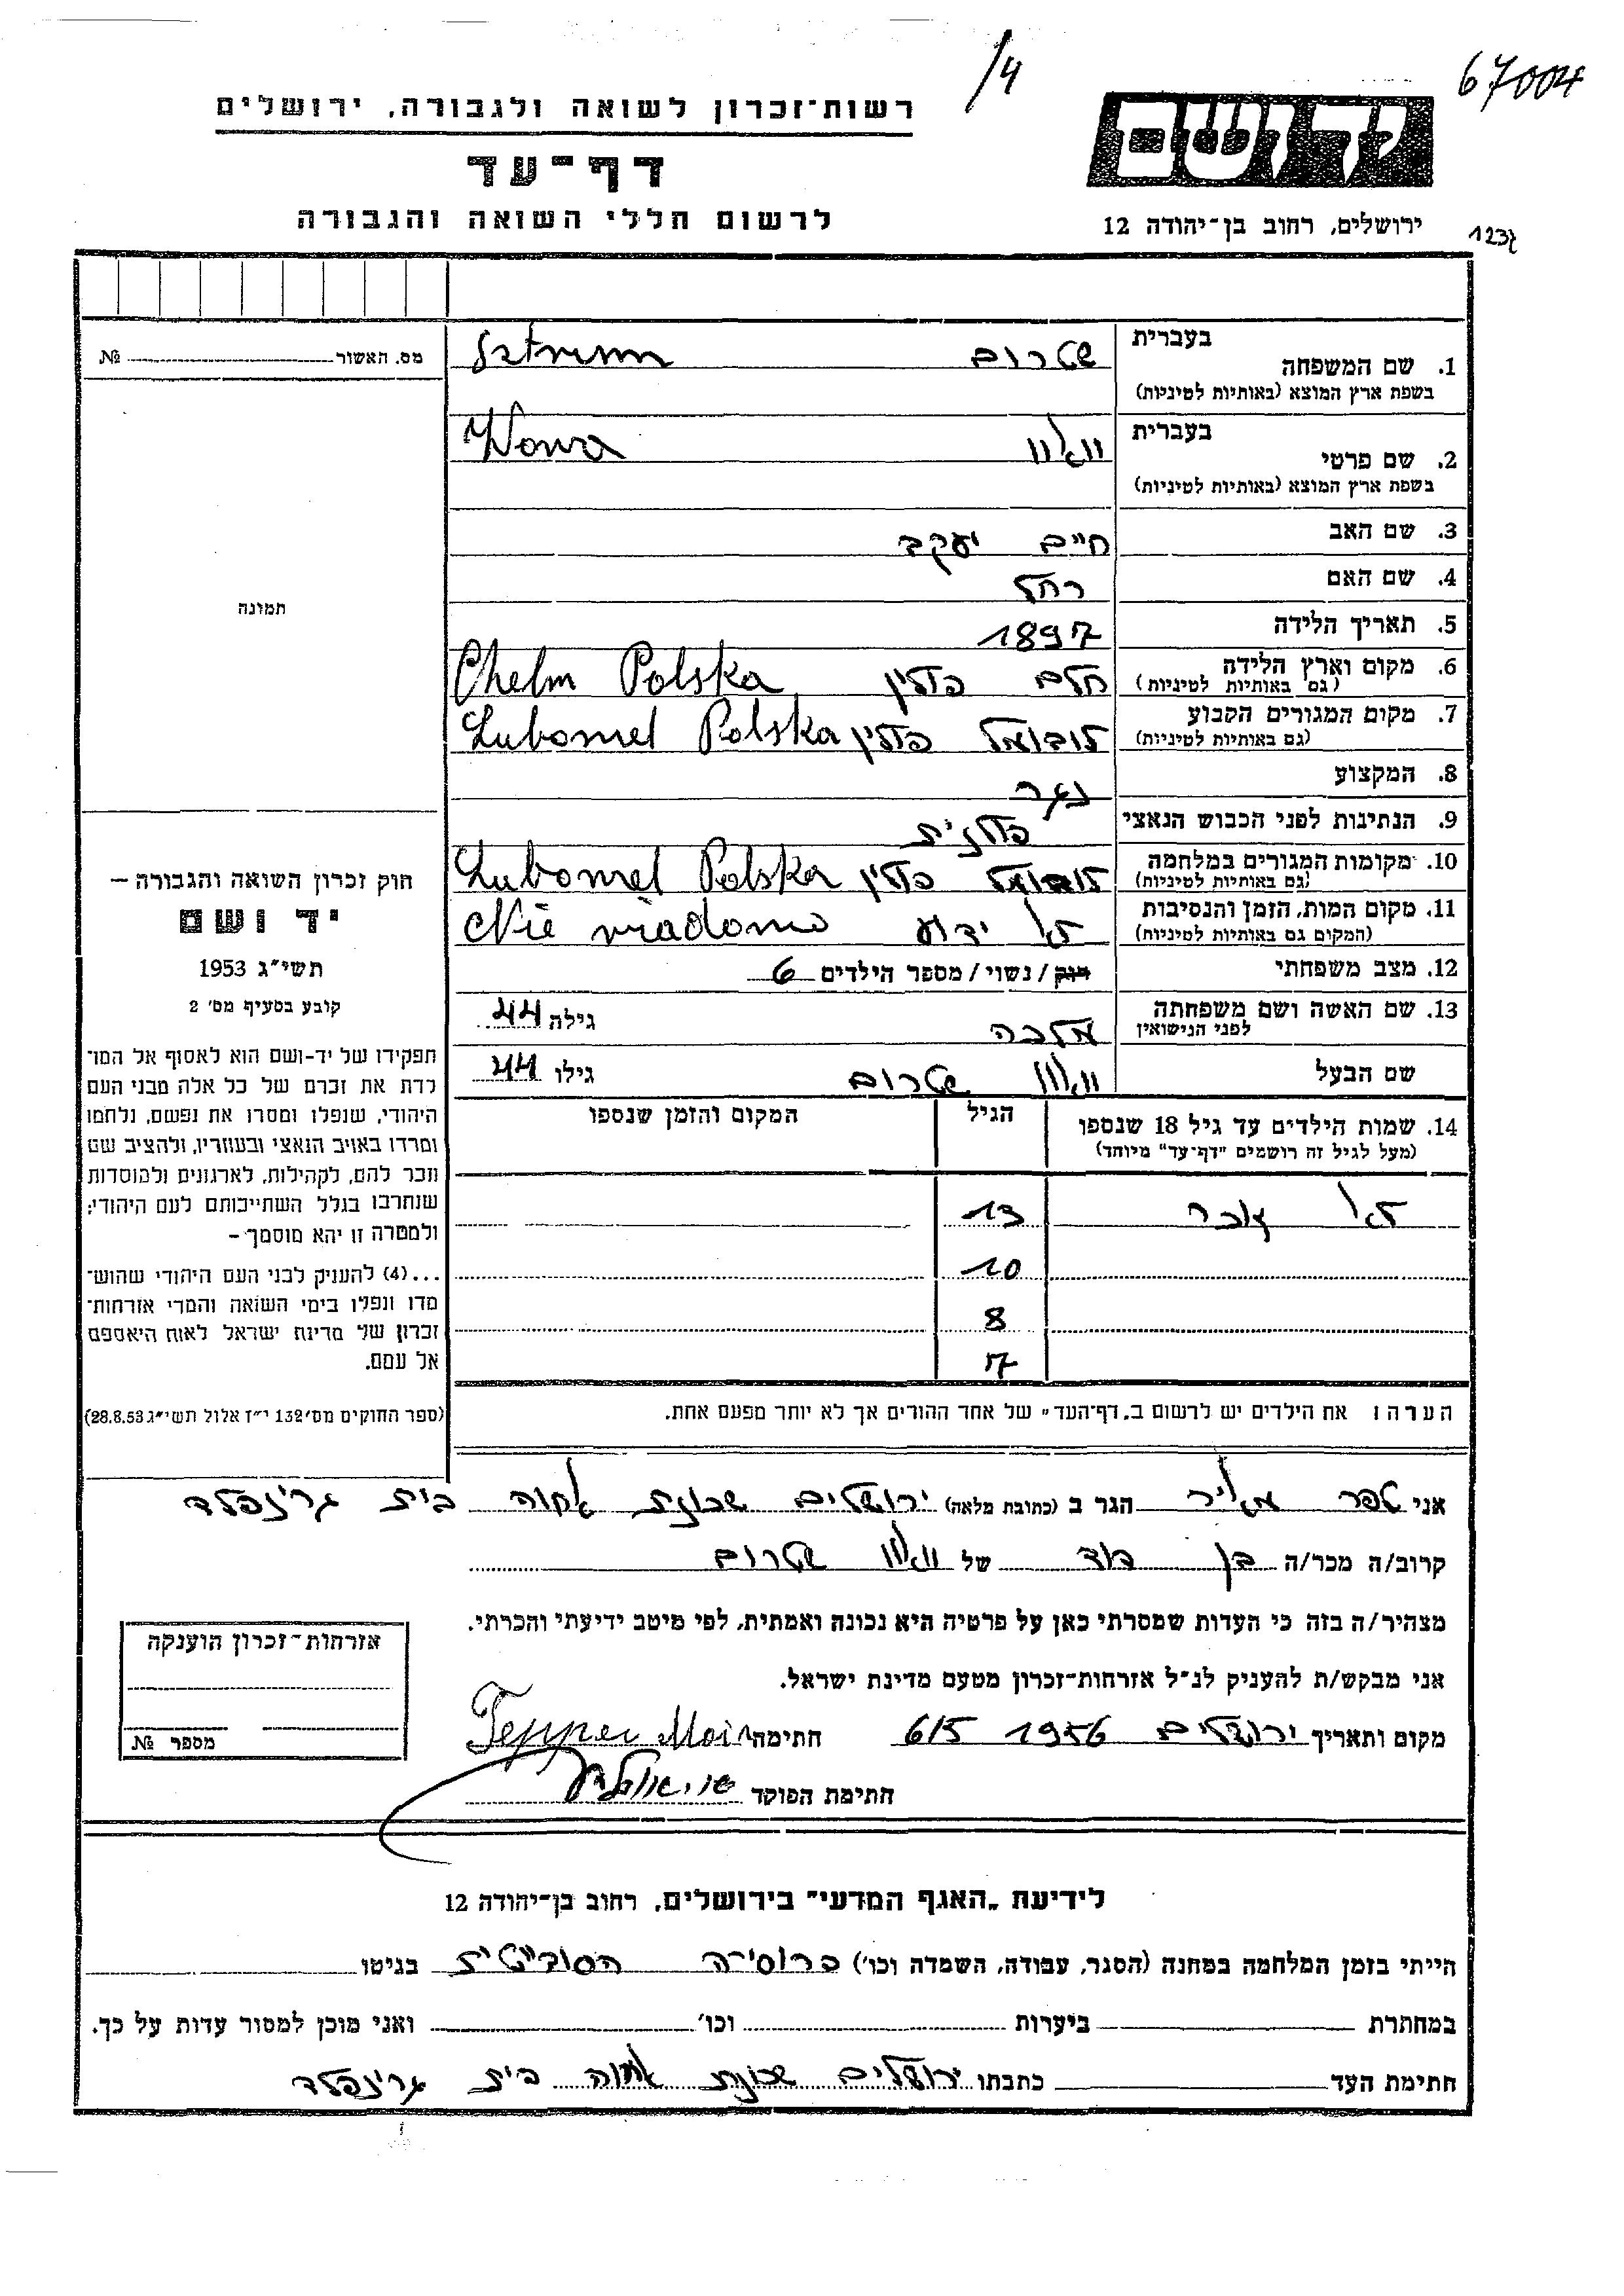 /4
67004
רשות־זכרון לשואה ולגבורה, ירושלים
ידושם
דף־עד
לרשום חללי השואה והגבורה
ירושלים, רחוב בן־יהודה 12
בעברית
1. שם המשפחה שטרום Sztrum
בשפת ארץ המוצא (באותיות לטיניות)
מס. האשור № 
בעברית
2. שם פרטי
בשפת ארץ המוצא (באותיות לטיניות)
3. שם האב חיים יעקב
4. שם האם רחל
תמונה
5. תאריך הלידה 1897
6. מקום וארץ הלידה חלם פולין Chelm Polska
(גם באותיות לטיניות)
7. מקום המגורים הקבוע לובומל פולין Lubomel Polska
(גם באותיות לטיניות)
8. המקצוע נגר
9. הנתינות לפני הכבוש הנאצי פולנית
10. מקומות המגורים במלחמה לובומל פולין Lubomel Polska
(גם באותיות לטיניות)
11. מקום המות, הזמן והנסיבות לא ידוע Nie wiadomo
(המקום גם באותיות לטיניות)
12. מצב משפחתי רווק / נשוי / מספר הילדים 6
13. שם האשה ושם משפחתה לפני הנישואין מלכה גילה 44
שם הבעל שטרום גילו 44
14. שמות הילדים עד גיל 18 שנספו הגיל המקום והזמן שנספו
(מעל לגיל זה רושמים "דף־עד" מיוחד)
לא זוכר 13
10
8
7
הערה: את הילדים יש לרשום ב„דף־העד" של אחד ההורים אך לא יותר מפעם אחת.
חוק זכרון השואה והגבורה –
יד ושם
תשי״ג 1953
קובע בסעיף מס׳ 2
תפקידו של יד-ושם הוא לאסוף אל המו־
לדת את זכרם של כל אלה מבני העם
היהודי, שנפלו ומסרו את נפשם, נלחמו
ומרדו באויב הנאצי ובעוזריו, ולהציב שם
וזכר להם, לקהילות, לארגונים ולמוסדות
שנחרבו בגלל השתייכותם לעם היהודי;
ולמטרה זו יהא מוסמך –
...(4) להעניק לבני העם היהודי שהוש־
מדו ונפלו בימי השואה והמרי אזרחות־
זכרון של מדינת ישראל לאות היאספם
אל עמם.
(ספר החוקים מס׳ 132 י״ז אלול תשי״ג 28.8.53)
אני טפר מאיר הגר ב (כתובת מלאה) ירושלים שכונת אחוה בית גרינפלד
קרוב/ה מכר/ה בן דוד של שטרום
מצהיר/ה בזה כי העדות שמסרתי כאן על פרטיה היא נכונה ואמתית, לפי מיטב ידיעתי והכרתי.
אני מבקש/ת להעניק לנ״ל אזרחות־זכרון מטעם מדינת ישראל.
מקום ותאריך ירושלים 1956 6/5 חתימה Tepper Moir
חתימת הפוקד
אזרחות־זכרון הוענקה
מספר №
לידיעת „האגף המדעי" בירושלים, רחוב בן־יהודה 12
הייתי בזמן המלחמה במחנה (הסגר, עבודה, השמדה וכו׳) ברוסיה הסוביטית בגיטו
במחתרת ביערות וכו׳ ואני מוכן למסור עדות על כך.
חתימת העד כתבתו ירושלים שכונת אחוה בית גרינפלד